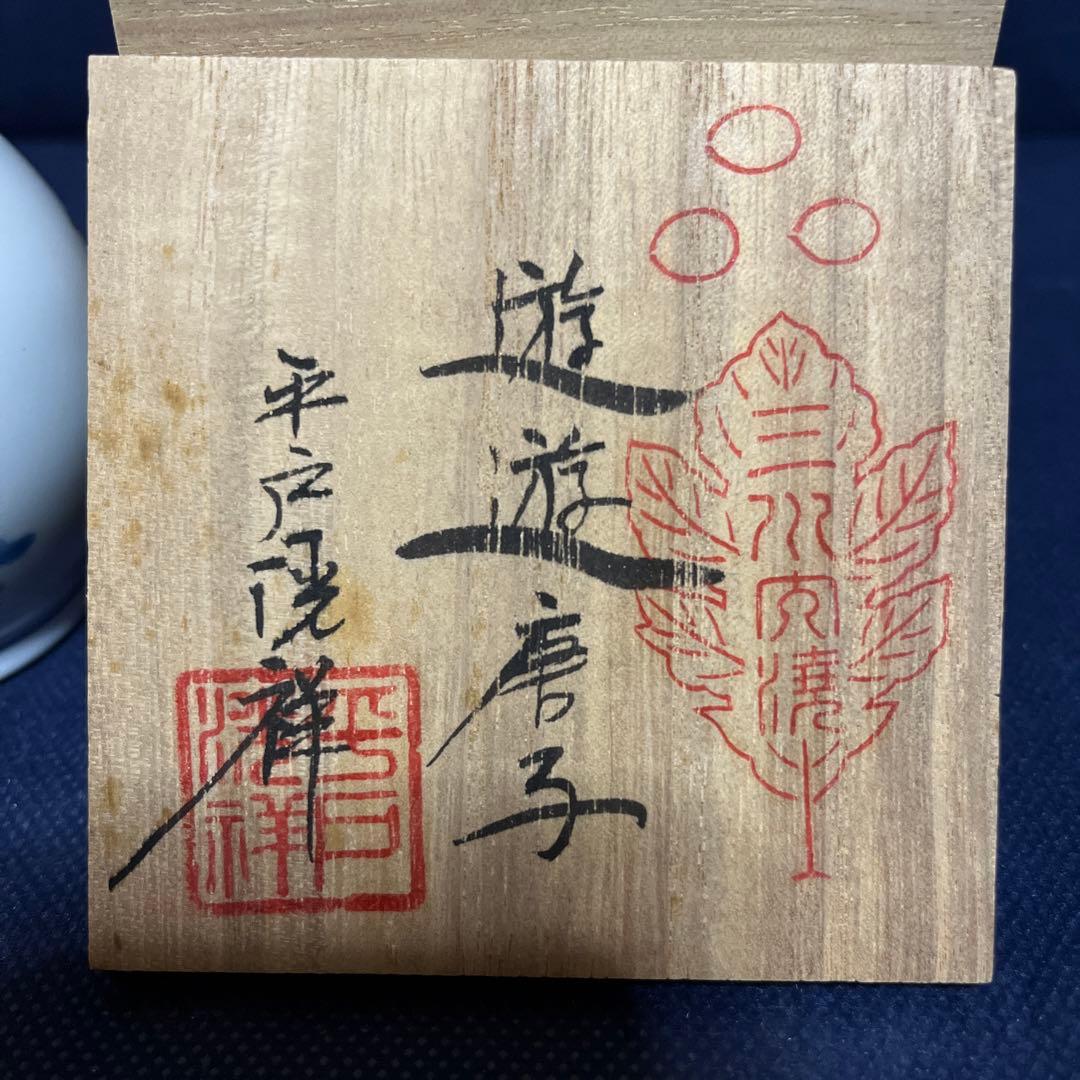 三川内焼
遊遊唐子
平戸洸祥
平戸洸祥